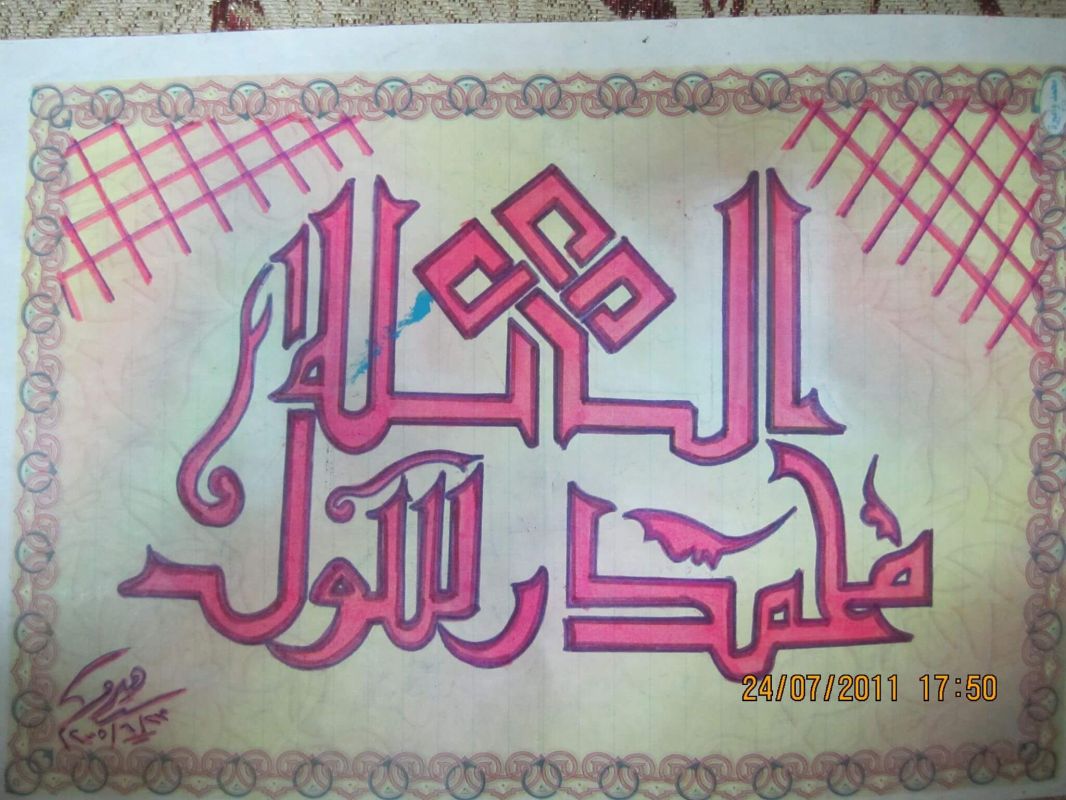 السلام
محمد رسول
24/07/2011 17:50